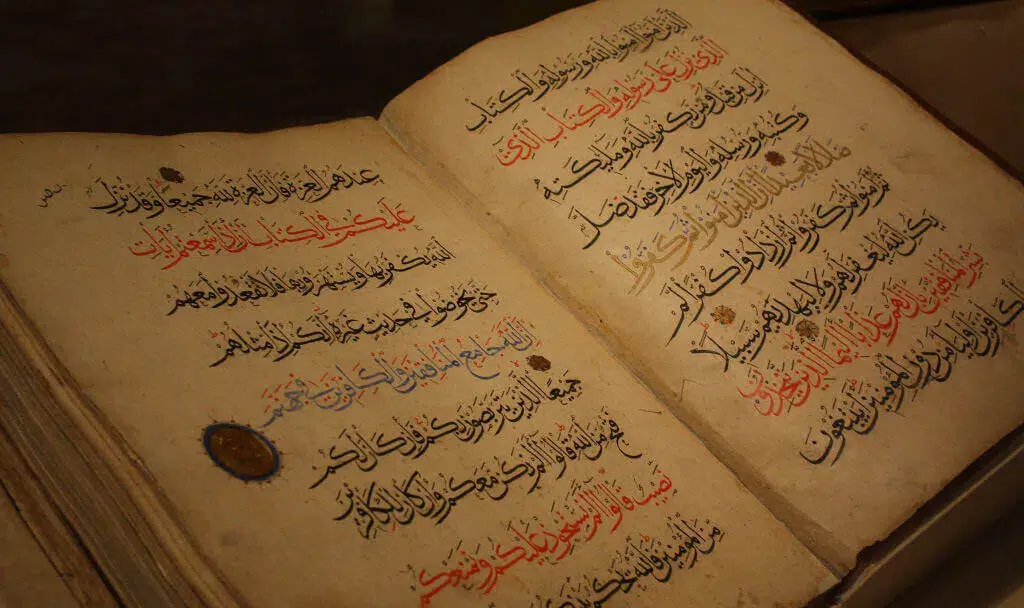 الذين امنوا امنوا بالله ورسوله والكتاب
الذي نزل على رسوله والكتاب الذي
انزل من قبل ومن يكفر بالله ومليكته
وكتبه ورسله واليوم الاخر فقد ضل
ضلالا بعيدا ان الذين امنوا ثم كفروا
ثم امنوا ثم كفروا ثم ازدادوا كفرا لم
يكن الله ليغفر لهم ولا ليهديهم سبيلا
بشر المنافقين بان لهم عذابا اليما الذين يتخذون
الكافرين اوليا من دون المؤمنين ايبتغون
عندهم العزة فان العزة لله جميعا وقد نزل
عليكم في الكتاب ان اذا سمعتم ايات
الله يكفر بها ويستهزا بها فلا تقعدوا معهم
حتى يخوضوا في حديث غيره انكم اذا مثلهم
ان الله جامع المنافقين والكافرين في جهنم
جميعا الذين يتربصون بكم فان كان لكم
فتح من الله قالوا الم نكن معكم وان كان للكافرين
نصيب قالوا الم نستحوذ عليكم ونمنعكم
من المؤمنين فالله يحكم